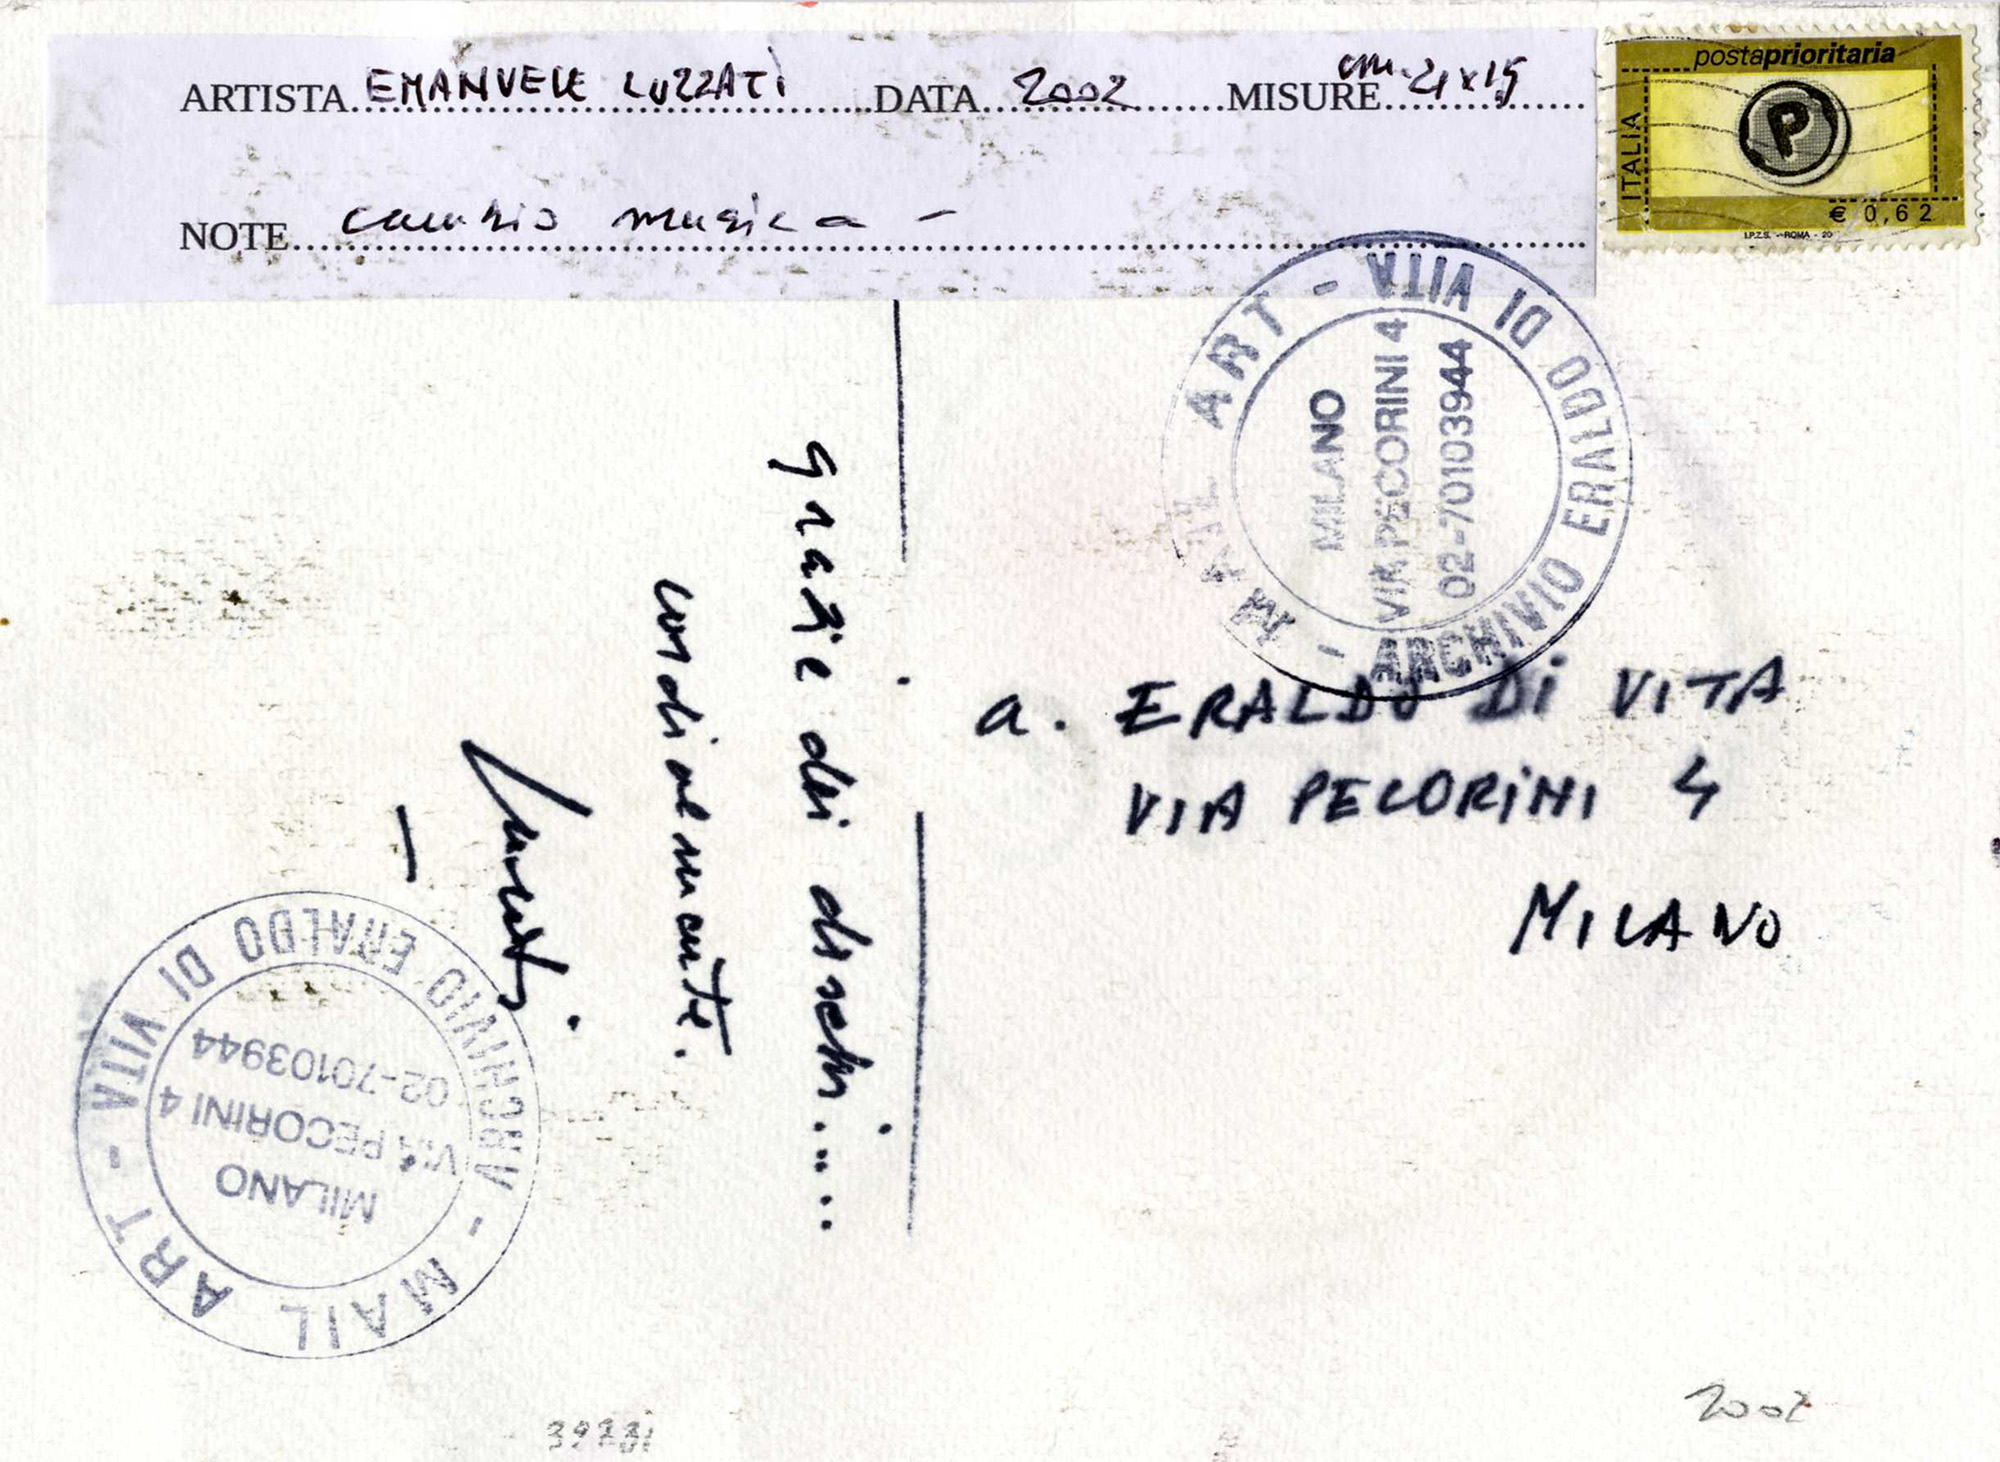 ARTISTA EMANUELE LUZZATI DATA 2002 MISURE cm. 21x15
NOTE cambio musica -
postaprioritaria
ITALIA
P
€ 0,62
I.P.Z.S. - ROMA - 20
MAIL ART - ARCHIVIO ERALDO DI VITA -
MILANO
VIA PECORINI 4
02-70103944
grazie dei dischi.....
cordialmente.
Luzzati.
a. ERALDO DI VITA
VIA PECORINI 4
MILANO
MAIL ART - ARCHIVIO ERALDO DI VITA -
MILANO
VIA PECORINI 4
02-70103944
2002